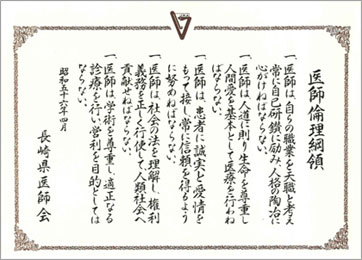 医師倫理綱領
一、医師は、自らの職業を天職と考え
常に自己研鑽に励み、人格の陶冶に
心がけねばならない。
一、医師は、人道に則り生命を尊重し
人間愛を基本として医療を行わね
ばならない。
一、医師は、患者に誠実と愛情を
もって接し常に信頼を得るよう
に努めねばならない。
一、医師は、社会の法を理解し、権利
義務を正しく行使して人類社会へ
貢献せねばならない。
一、医師は学術を尊重し、適正なる
診療を行い、営利を目的としては
ならない。
昭和五十六年四月
長崎県医師会